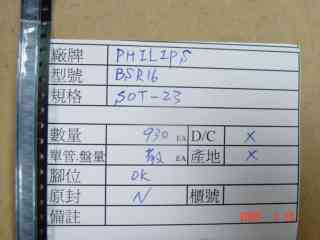 廠牌 PHILIPS
型號 BSR16
規格 SOT-23
數量 930 EA D/C X
單管.盤量 散 EA 產地 X
腳位 OK
原封 N 櫃號
備註